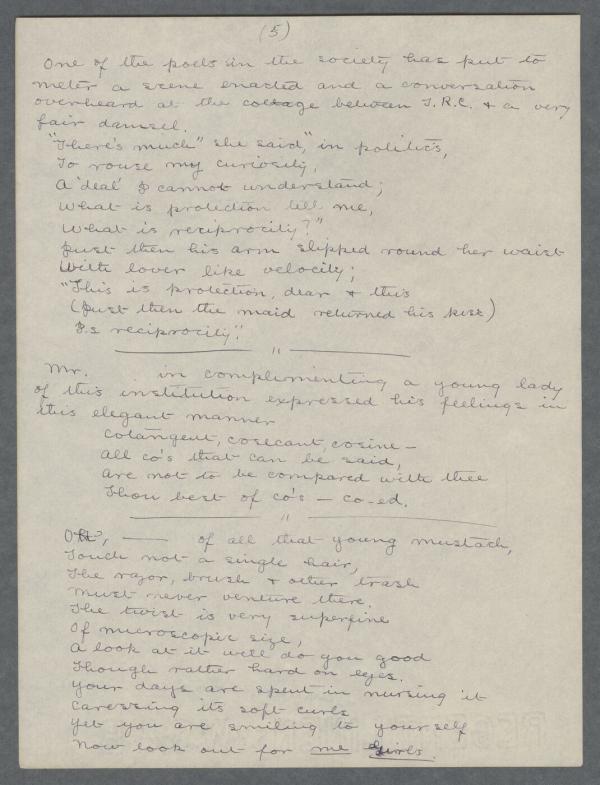 (5)
One of the poets in the society has put to
meter a scene enacted and a conversation
overheard at the cottage between J.R.C. & a very
fair damsel.
"There's much" she said, "in politics,
To rouse my curiosity,
A 'deal' I cannot understand;
What is protection tell me,
What is reciprocity?"
Just then his arm slipped round her waist
With lover like velocity;
"This is protection, dear & this
(Just then the maid returned his kiss)
Is reciprocity".
"
Mr. in complimenting a young lady
of this institution expressed his feelings in
this elegant manner
Cotangent, cosecant, cosine —
All co's that can be said,
Are not to be compared with thee
Thou best of co's — co-ed.
"
Oh, — of all that young mustach,
Touch not a single hair,
The razor, brush & other trash
Must never venture there.
The twist is very superfine
Of microscopic size,
A look at it will do you good
Though rather hard on eyes.
Your days are spent in nursing it
Caressing its soft curls
Yet you are smiling to yourself
Now look out for me Girls.